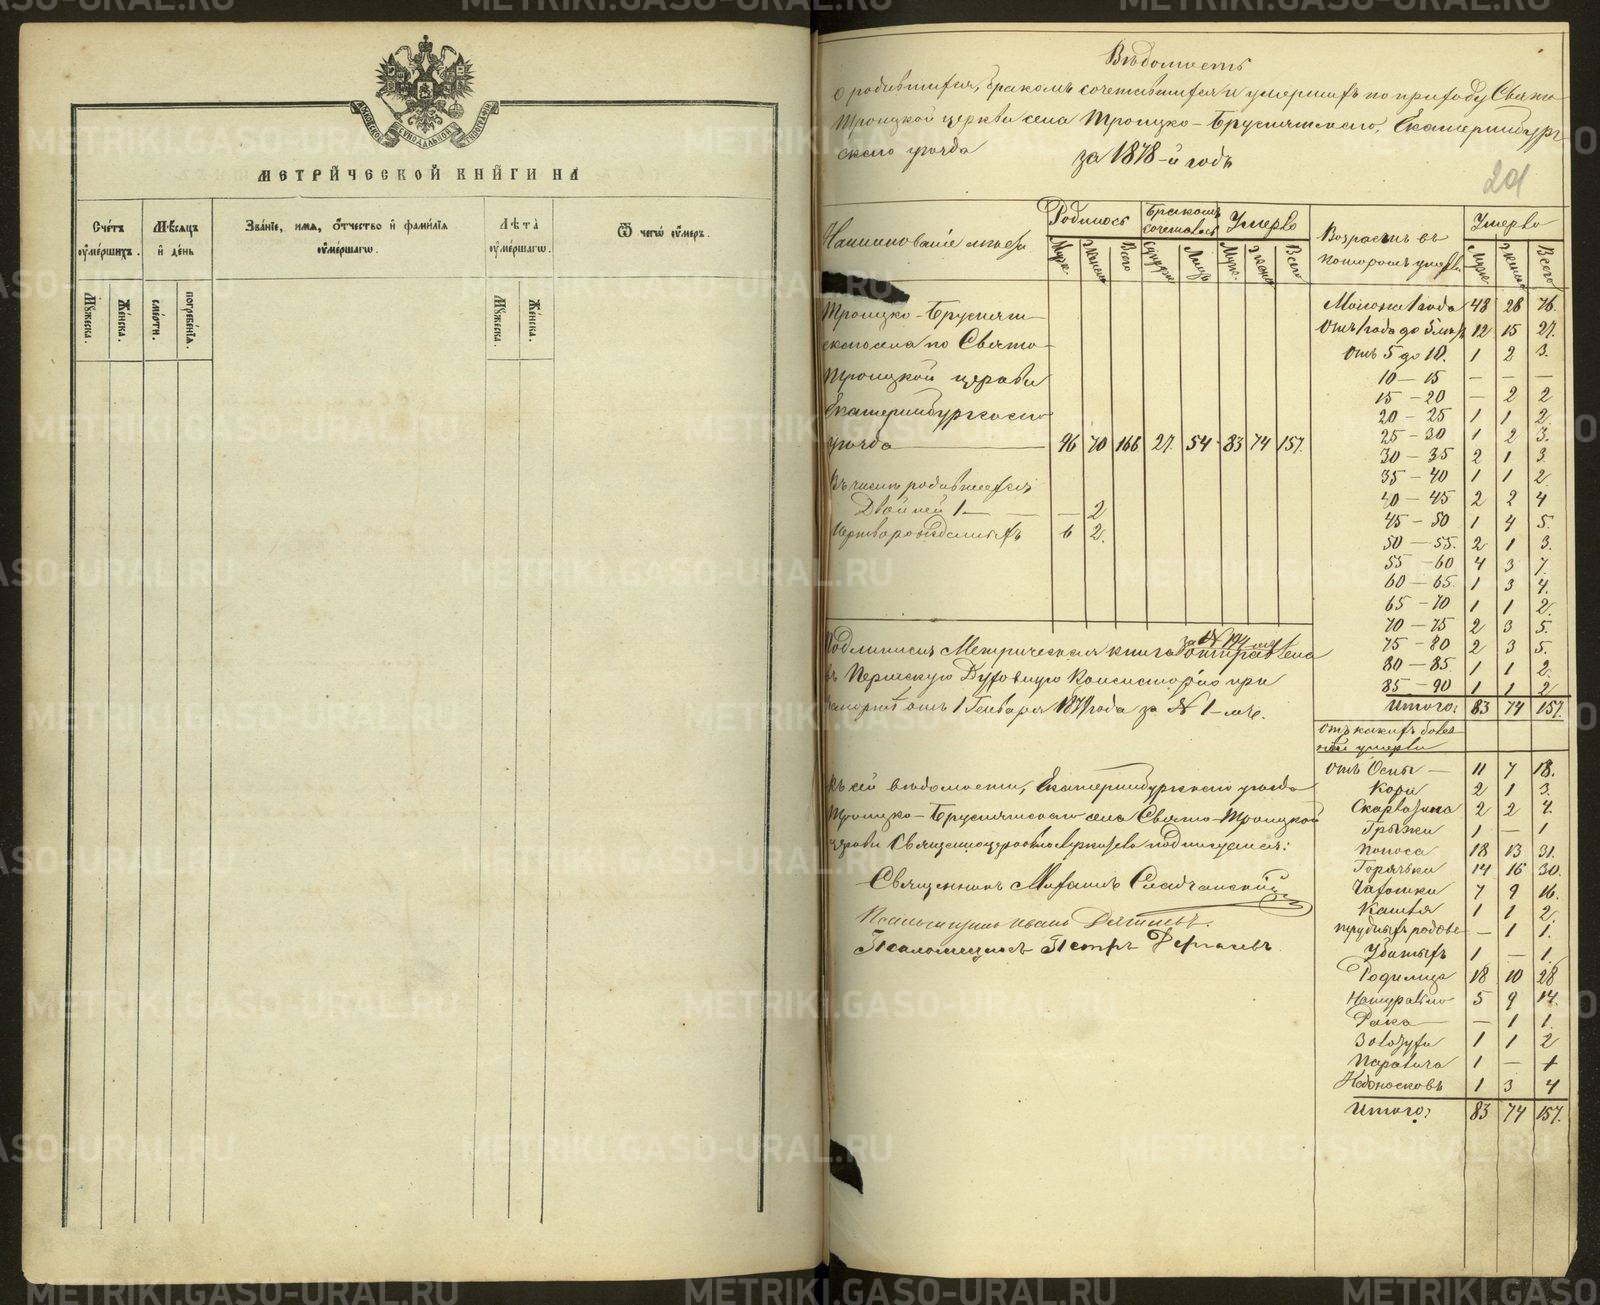 ДУХОВСКОЙ
СѴНОДАЛЬНОЙ
ТИПОГРАФІИ
МЕТРИЧЕСКОЙ КНИГИ НА
Счетъ умершихъ.
Мѣсяцъ и день
Званіе, имя, отчество и фамилія умершаго.
Лѣта умершаго.
Ѿ чегѡ умеръ.
Мужеска.
Женска.
смерти.
погребенія.
Мужеска.
Женска.
Вѣдомость
о родившихся, бракомъ сочетавшихся и умершихъ по приходу Свято
Троицкой церкви села Троицко-Бруснятскаго, Екатеринбург-
скаго уѣзда за 1878-й годъ
201
Наименованіе мѣста
Родилось
Бракомъ сочеталось
Умерло
Муж. Женск. Всего Супруж. Лицъ Муж. Женск. Всего
Троицко-Бруснят-
скаго села по Свято-
Троицкой церкви
Екатеринбургскаго
уѣзда 96 70 166 27. 54 83 74 157.
Въ числѣ родившихся:
Двойней 1 — — — 2
Мертворожденныхъ 6 2.
Подлинная Метрическая книга за 1878 годъ отправлена
въ Пермскую Духовную Консисторію при
рапортѣ отъ 1 Генваря 1879 года за № 1-мъ.
Къ сей вѣдомости, Екатеринбургскаго уѣзда
Троицко-Бруснятскаго села Свято-Троицкой
церкви Священноцерковнослужители подписуемся:
Священникъ
Псаломщикъ Иванъ
Псаломщикъ Петръ Дергачевъ
Возрастъ въ которомъ умерли
Умерло
Муж. Женск. Всего
Моложе 1 года 48 28 76.
Отъ 1 года до 5 лѣтъ 12 15 27.
Отъ 5 до 10. 1 2 3.
10 — 15 — — —
15 — 20 — 2 2
20 — 25 1 1 2.
25 — 30 1 2 3.
30 — 35 2 1 3
35 — 40 1 1 2
40 — 45 2 2 4
45 — 50 1 4 5.
50 — 55. 2 1 3.
55 — 60 4 3 7.
60 — 65. 1 3 4.
65 — 70 1 1 2.
70 — 75 2 3 5.
75 — 80 2 3 5.
80 — 85 1 1 2.
85 — 90 1 1 2
Итого: 83 74 157.
Отъ какихъ болѣзней умерли
Отъ Оспы — 11 7 18.
Кори 2 1 3.
Скарлатина 2 2 4.
Грыжи 1 — 1
Поноса 18 13 31.
Горячки 14 16 30.
Чахотки 7 9 16.
Кашля 1 1 2.
трудныхъ родовъ — 1 1.
Убитыхъ 1 — 1.
Родимца 18 10 28
Натурально 5 9 14.
Рака — 1 1.
Золотухи 1 1 2
Паралича 1 — 1
Недоносковъ 1 3 4
Итого: 83 74 157.
METRIKI.GASO-URAL.RU